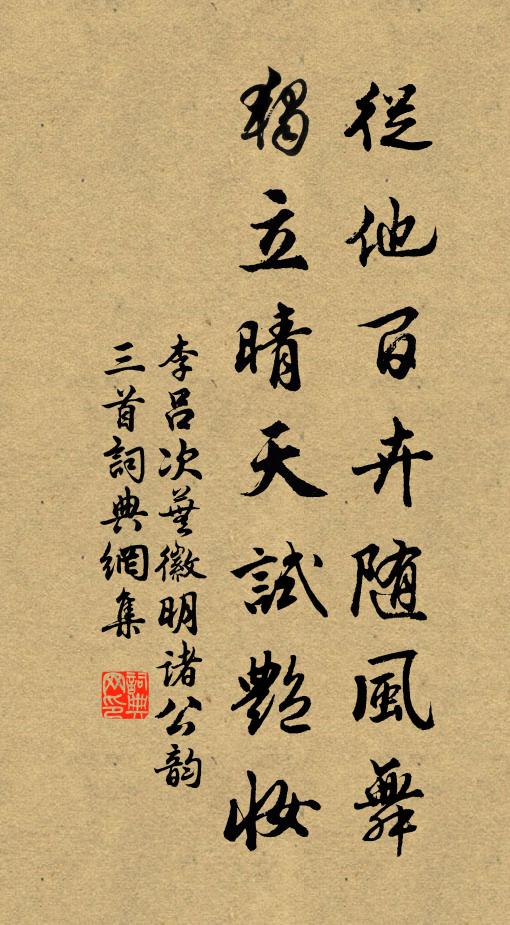 從他百卉随風舞
獨立晴天試艷妝
李呂次蕪徽明诸公韵
三首詞典網集
詞典网印